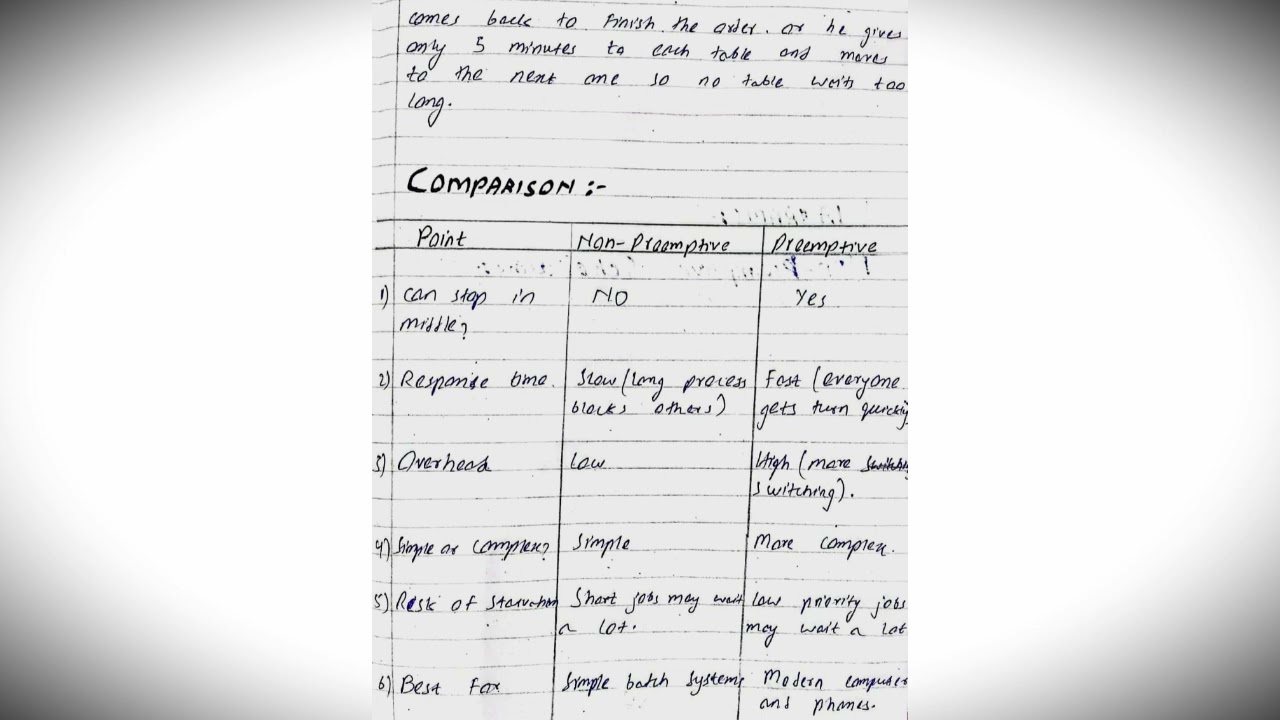 comes back to finish the order. or he gives
only 5 minutes to each table and moves
to the next one so no table waits too
long.
COMPARISON :-
Point Non-Preemptive Preemptive
1) can stop in NO Yes
middle?
2) Response time. Slow (long process Fast (everyone
blocks others) gets turn quickly
3) Overhead Low High (more
switching).
4) Simple or complex? Simple More complex.
5) Risk of starvation Short jobs may wait Low priority jobs
a lot. may wait a lot
6) Best for Simple batch systems Modern computer
and phones.